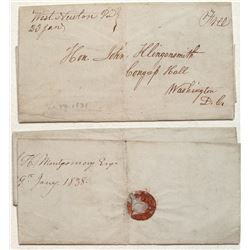 West Newton Pa
23 Jany
Free
Hon. John Klingensmith
Congress Hall
Washington
D.C.
H. Montgomery Esqr
9th Jany. 1838.